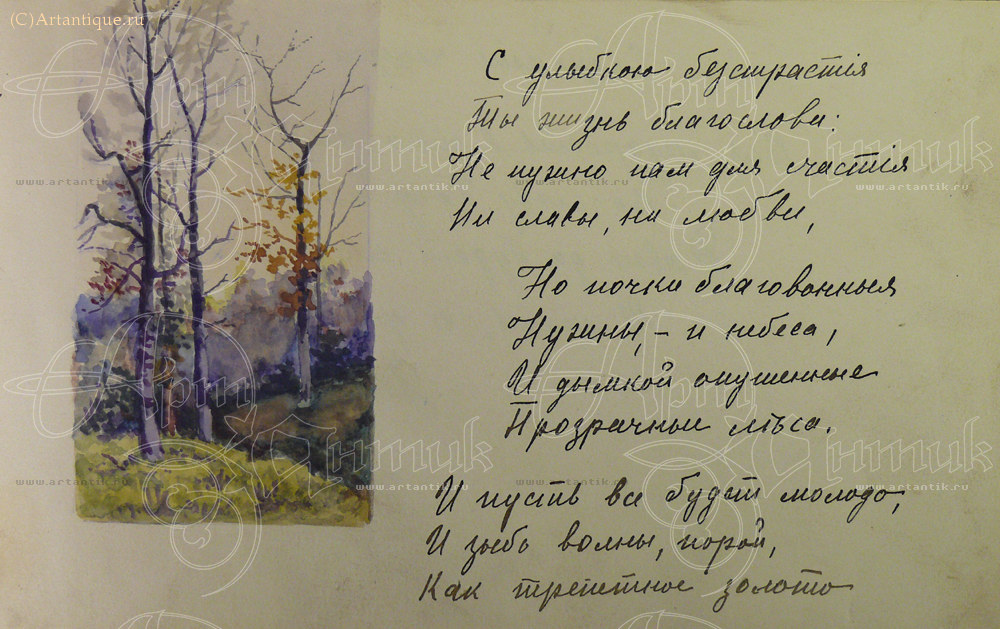 (C)Artantique.ru
С улыбкою безстрастія
Ты жизнь благослови:
Не нужно нам для счастія
Ни славы, ни любви,
Но почки благовонныя
Нужны, – и небеса,
И дымкой опушенные
Прозрачные лѣса.
И пусть все будет молодо,
И зыбь волны, порой,
Как трепетное золото
Арт Антик
www.artantik.ru